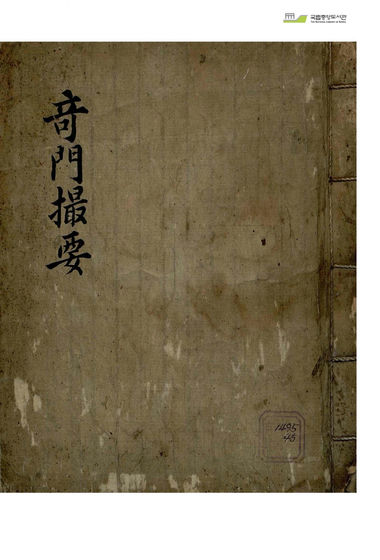 국립중앙도서관
THE NATIONAL LIBRARY OF KOREA
奇門撮要
1495
45